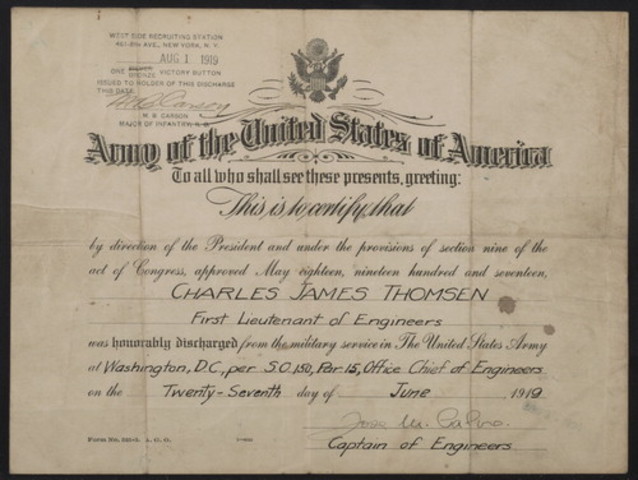 WEST SIDE RECRUITING STATION
AVE., NEW YORK, N. Y.
AUG 1 1919
ONE SILVER BRONZE VICTORY BUTTON
ISSUED TO HOLDER OF THIS DISCHARGE
THIS DATE.
M B Carson
M. B. CARSON
MAJOR OF INFANTRY,
Army of the United States of America
To all who shall see these presents, greeting:
This is to certify, that
by direction of the President and under the provisions of section nine of the
act of Congress, approved May eighteen, nineteen hundred and seventeen,
CHARLES JAMES THOMSEN
First Lieutenant of Engineers
was honorably discharged from the military service in The United States Army
at Washington, D.C., per S.O. 150, Par. 15, Office Chief of Engineers
on the Twenty-Seventh day of June , 1919
M.
Captain of Engineers
Form No. A. G. O.